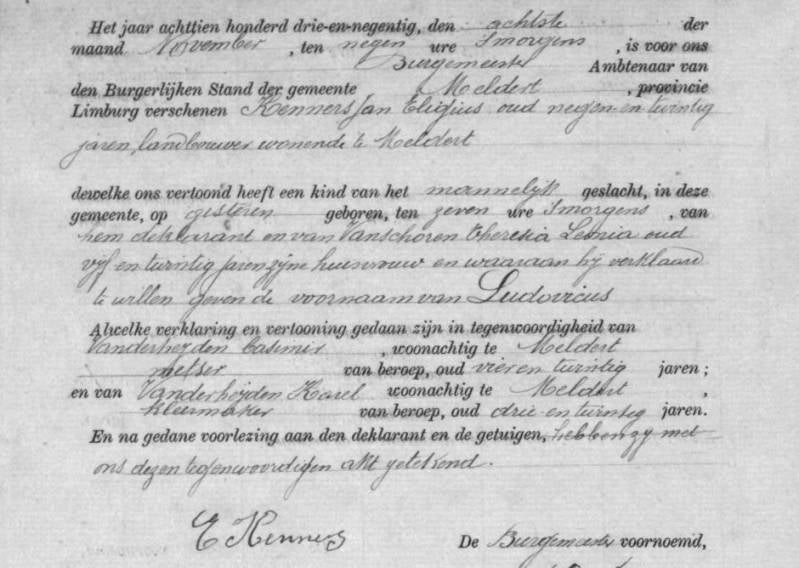 Het jaar achttien honderd drie-en-negentig, den achtste der
maand November, ten negen ure Smorgens, is voor ons
Burgemeester Ambtenaar van
den Burgerlijken Stand der gemeente Meldert, provincie
Limburg verschenen Kenners Jan Eligius oud negen-en-twintig
jaren, landbouwer wonende te Meldert
dewelke ons vertoond heeft een kind van het mannelijk geslacht, in deze
gemeente, op gisteren geboren, ten zeven ure Smorgens, van
hem deklarant en van Vanschoren Theresia Leonia oud
vijf en twintig jaren zijne huisvrouw en waaraan hij verklaard
te willen geven de voornaam van Ludovicus
Alwelke verklaring en vertooning gedaan zijn in tegenwoordigheid van
Vanderheyden Casimir, woonachtig te Meldert
metser van beroep, oud vier en twintig jaren;
en van Vanderheyden Karel woonachtig te Meldert,
kleermaker van beroep, oud drie-en twinteg jaren.
En na gedane voorlezing aan den deklarant en de getuigen, hebben zy met
ons dezen tegenwoordigen akt getekend.
E Kenners
De Burgemeester voornoemd,